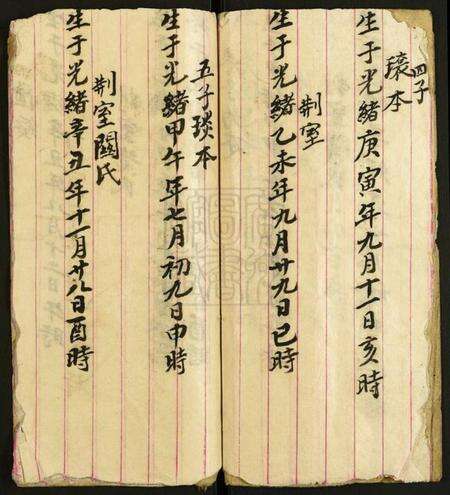 四子
環本
生于光緒庚寅年九月十一日亥時
荆室
生于光緒乙未年九月廿九日巳時
五子琰本
生于光緒甲午年七月初九日申時
荆室闗氏
生于光緒辛丑年十一月廿八日酉時